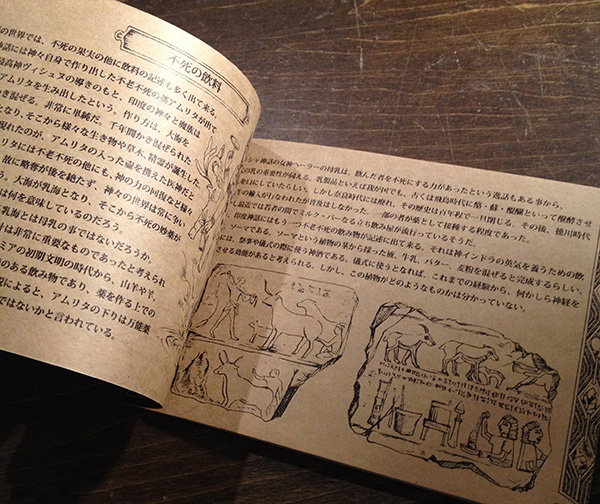 不死の飲料
の世界では、不死の果実の他に飲料の記述も多く出て来る。
神話には神々自身で作り出した不老不死の薬アムリタが出て
最高神ヴィシュヌの導きのもと、印度の神々と魔族は
アムリタを生み出したという。作り方は、大海を
き混ぜる。非常に単純だ。千年間かき混ぜられた
となり、そこから様々な生き物や草木、精霊が誕生した。
現れたのが、アムリタの入った壷を携えた医神だと
リタには不老不死の他にも、神の力の回復など様々
、故に略奪が後を絶たず、神々の世界は常に争い
う。大海が乳海となり、そこから不死の妙薬が
は何を意味しているのだろう。
乳海とは母乳の事ではないだろうか。
は非常に重要なものであったと考えられ
ミアの初期文明の時代から、山羊や羊、
のある飲み物であり、薬を作る上での
によると、アムリタの下りは万能薬
ではないかと言われている。
シャ神話の女神ヘーラーの母乳は、飲んだ者を不死にする力があったという逸話もある事から、
の乳の重要性が伺える。乳製品といえば我が国でも、古くは飛鳥時代に酪・蘇・醍醐といって醗酵させ
を口にしていたらしい。しかし奈良時代には廃れ、その歴史は百年程で一旦閉じる。その後、徳川時代
牛の輸入が行なわれたが普及はしなかった。一部の者が薬として接種する程度であった。
最近では若者の間でミルク・バーなる立ち飲み屋が流行っているそうだ。
印度神話にはもう一つ不老不死の飲み物が記述に出て来る。それは神インドラの英気を養うための飲
、ソーマである。ソーマという植物の茎から採った液、牛乳、バター、麦粉を混ぜると完成するらしい。
には、祭事や儀式の際に使う神酒である。儀式に使うとなれば、これまでの経験から、何かしら神経を
させる効能があると考えられる。しかし、この植物がどのようなものかは分かっていない。